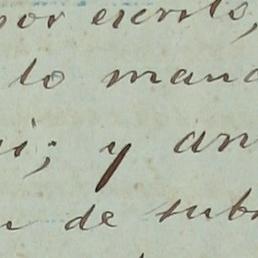 por escrito,
lo mand
i; y an
de sub